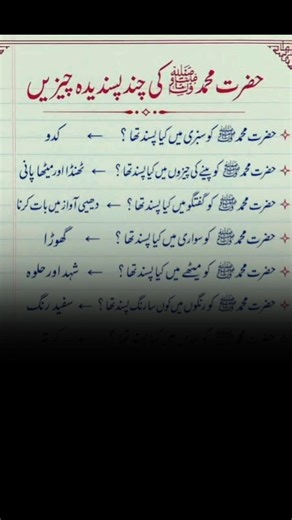 حضرت محمد ﷺ کی چند پسندیدہ چیزیں
حضرت محمد ﷺ کو سبزی میں کیا پسند تھا ؟ ← کدو
حضرت محمد ﷺ کو پینے کی چیزوں میں کیا پسند تھا ؟ ← ٹھنڈا اور میٹھا پانی
حضرت محمد ﷺ کو گفتگو میں کیا پسند تھا ؟ ← دھیمی آواز میں بات کرنا
حضرت محمد ﷺ کو سواری میں کیا پسند تھا ؟ ← گھوڑا
حضرت محمد ﷺ کو میٹھے میں کیا پسند تھا ؟ ← شہد اور حلوہ
حضرت محمد ﷺ کو رنگوں میں کون سا رنگ پسند تھا ؟ ← سفید رنگ